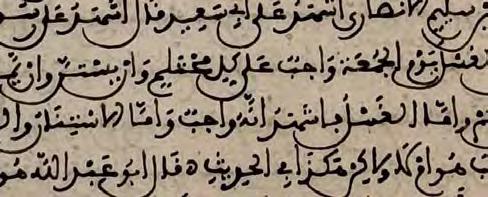 بن سليم الانصاري اشهد على ابي سعيد قال اشهد على
الغسل يوم الجمعة واجب على كل محتلم وان يستن وان يمس
عمرو اما الغسل فاشهد انه واجب واما الاستنان وا
هو ام لا ولكن هكذا في الحديث قال ابو عبد الله هو